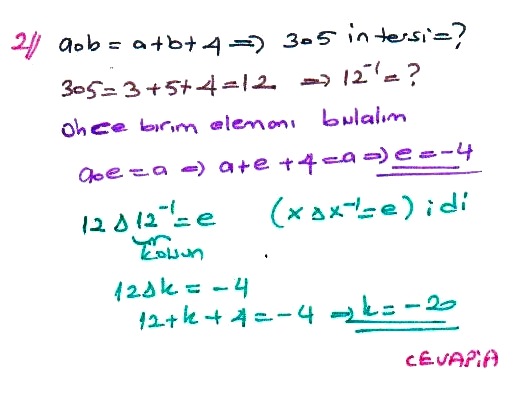 2// aob = a+b+4 ⇒ 3o5 in tersi = ?
3o5 = 3+5+4 = 12 ⇒ 12⁻¹ = ?
Önce birim elemanı bulalım
aoe = a ⇒ a+e+4 = a ⇒ e = -4
12 Δ 12⁻¹ = e (x Δ x⁻¹ = e) idi
k olsun
12 Δ k = -4
12+k+4 = -4 ⇒ k = -20
CEVAP: A